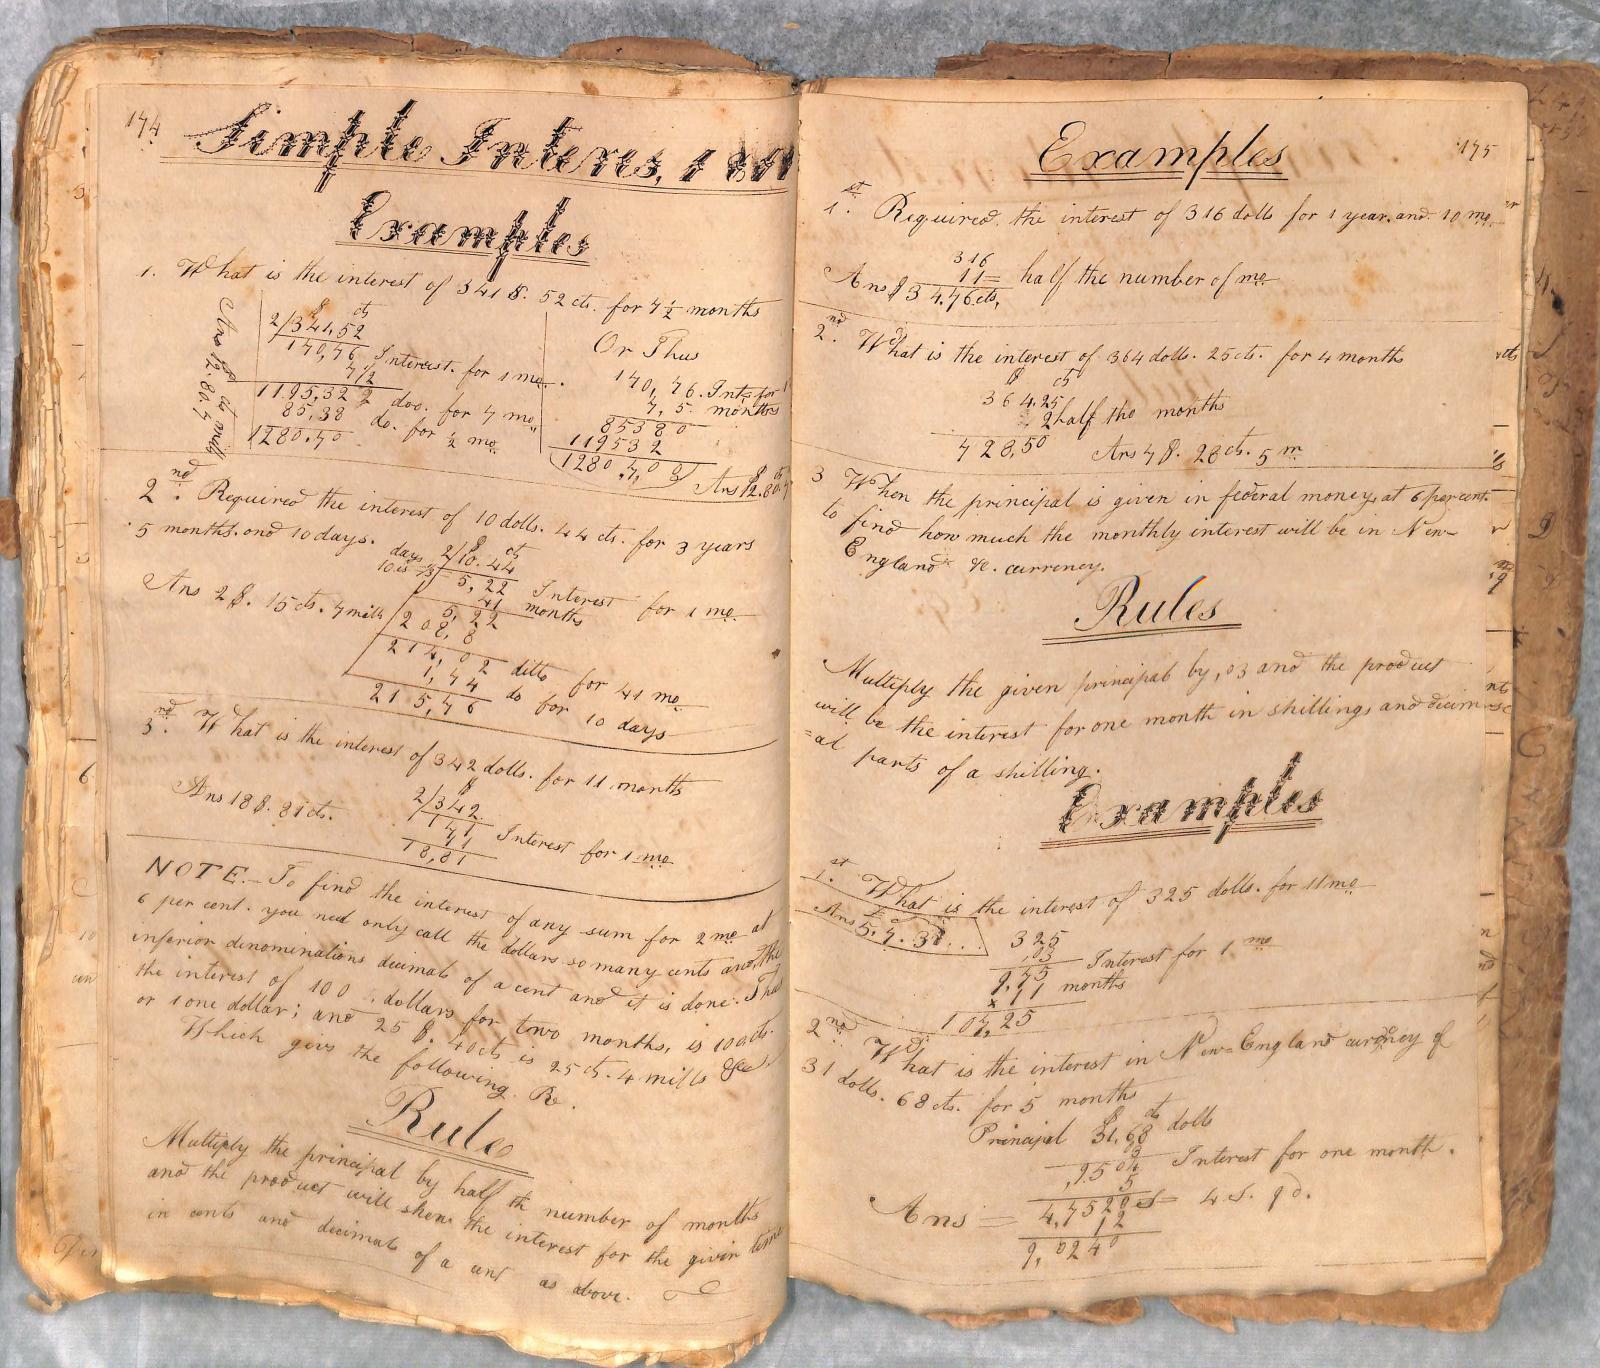 174
Simple Interes,
Examples
1. What is the interest of 341 $. 52 cts. for 7 1/2 months
$ cts
2/341,52
170,76 Interest. for 1 mo.
7 1/2
1195,32 doo. for 7 mo
85,38 do. for 1/2 mo.
1280.70
Or Thus
170,76. Int= for 1
7,5. months
85380
119532
1280,700
2nd. Required the interest of 10 dolls. 44 cts. for 3 years
5 months. and 10 days.
days $ cts
10 is = 1/3 2/10.44
5,22 Interest for 1 mo.
41 months
5,22
208,8
214,02 ditto for 41 mo.
1,74 do for 10 days
215,76
Ans 2 $. 15 cts. 7 mills
3rd. What is the interest of 342 dolls. for 11 months
$
2/342.
171 Interest for 1 mo
11
18,81
Ans 18 $. 81 cts.
NOTE.- To find the interest of any sum for 2 mo at
6 per cent. you need only call the dollars so many cents and the
inferior denominations decimals of a cent and it is done. Thus
the interest of 100 dollars for two months, is 100 cts.
or 1 one dollar; and 25 $. 40 cts is 25 cts. 4 mills &c.
Which gives the following. Re.
Rule
Multiply the principal by half the number of months
and the product will shew the interest for the given time
in cents and decimals of a cent as above.
Examples
175
1st. Required. the interest of 316 dolls for 1 year. and 10 mo.
316
11= half the number of mo
Ans $ 34.76 cts,
2nd. What is the interest of 364 dolls. 25 cts. for 4 months
$ cts
364.25
2 half the months
728,50 Ans 7 $. 28 cts. 5 m
3 When the principal is given in federal money, at 6 per cent.
to find how much the monthly interest will be in New-
England &c. currency.
Rules
Multiply the given principal by ,03 and the product
will, be the interest for one month in shillings and decim
=al parts of a shilling.
Examples
1st. What is the interest of 325 dolls. for 11 mo
325
,03
9,75 Interest for 1 mo
× 11 months
107,25
2nd. What is the interest in New-England currency of
31 dolls. 68 cts. for 5 months
$ cts
Principal 31,68 dolls
,03
,9504 Interest for one month.
5
Ans = 4,7520 s = 4 s. 9 d.
12
9,0240